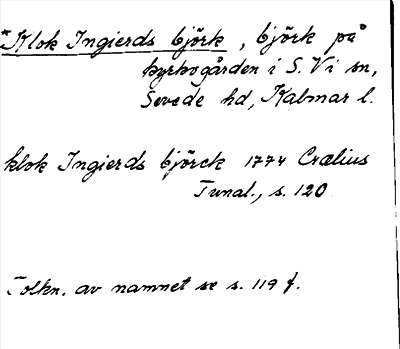 *Klok Ingierds björk, björk på
kyrkogården i S. Vi sn,
Sevede hd, Kalmar l.
klok Ingierds björck 1774 Crælius
Tunal., s. 120
Tolkn. av namnet se s. 119 f.